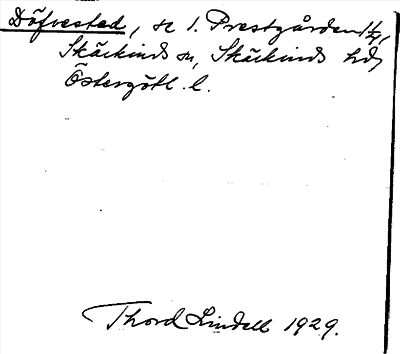 Döfvestad, se 1. Prestgården 1/4,
Skärkinds sn, Skärkinds hd,
Östergötl. l.
Thord Lindell 1929.